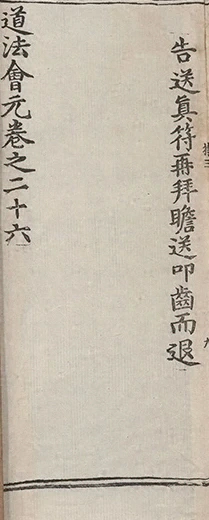 告送真符再拜瞻送叩齒而退
道法會元卷之二十六